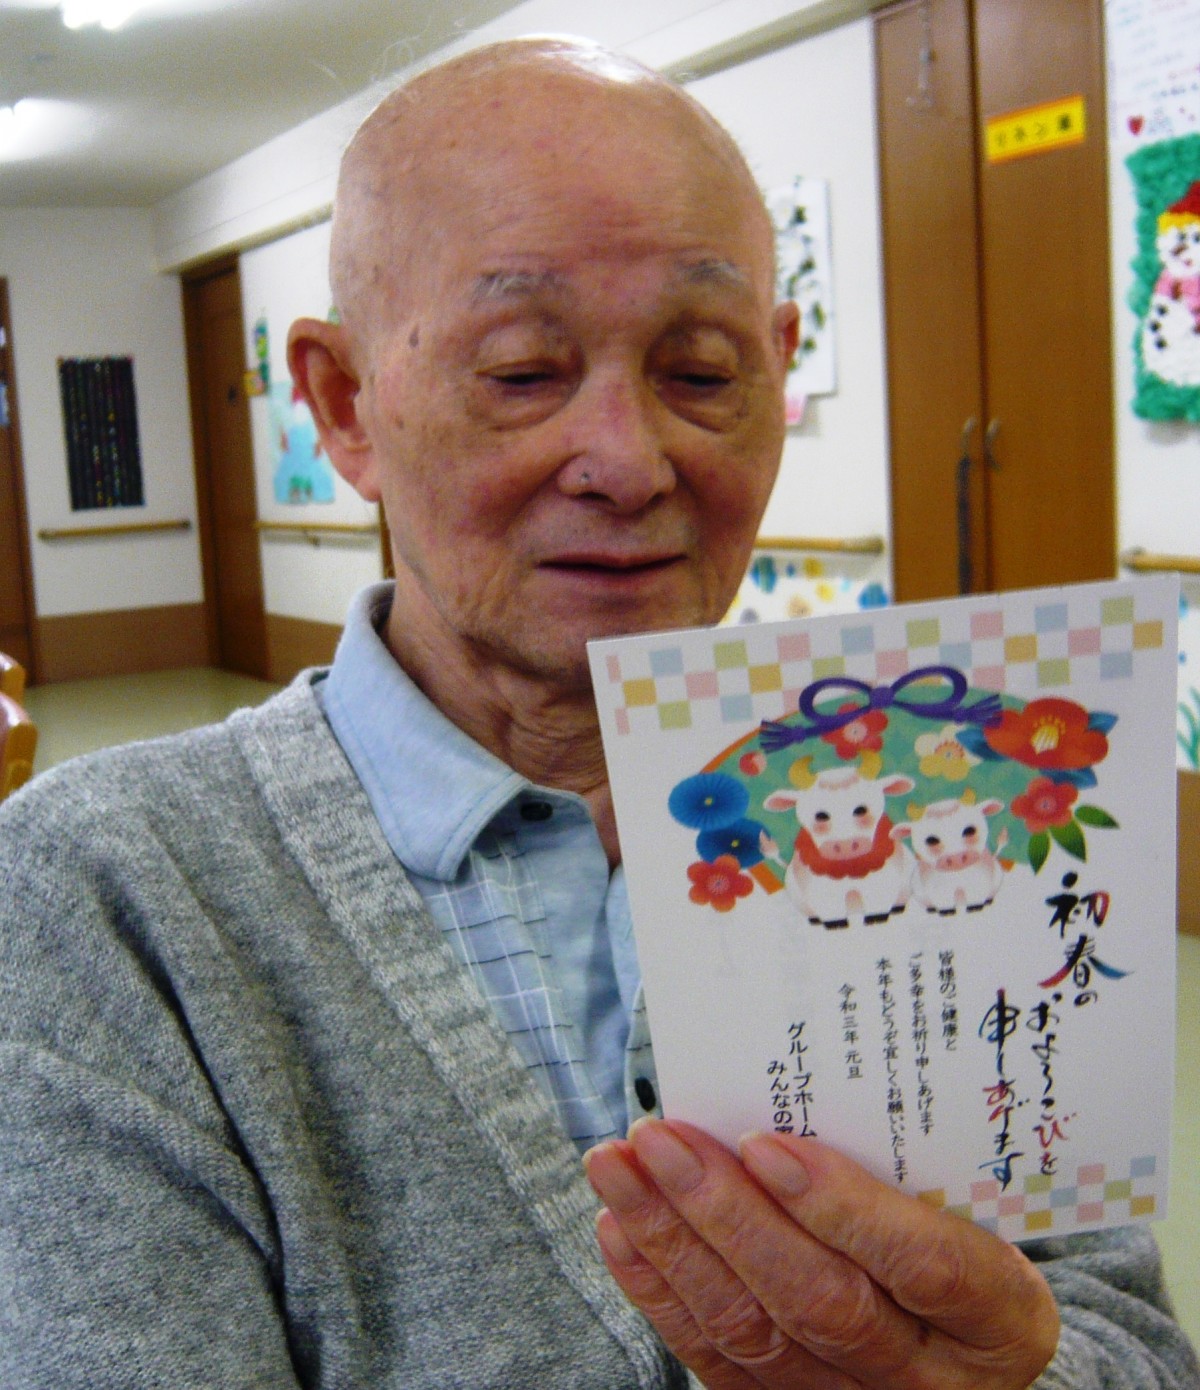 リネン庫
初春の
およろこびを
申しあげます
皆様のご健康と
ご多幸をお祈り申しあげます
本年もどうぞ宜しくお願いいたします
令和三年 元旦
グループホーム
みんなの